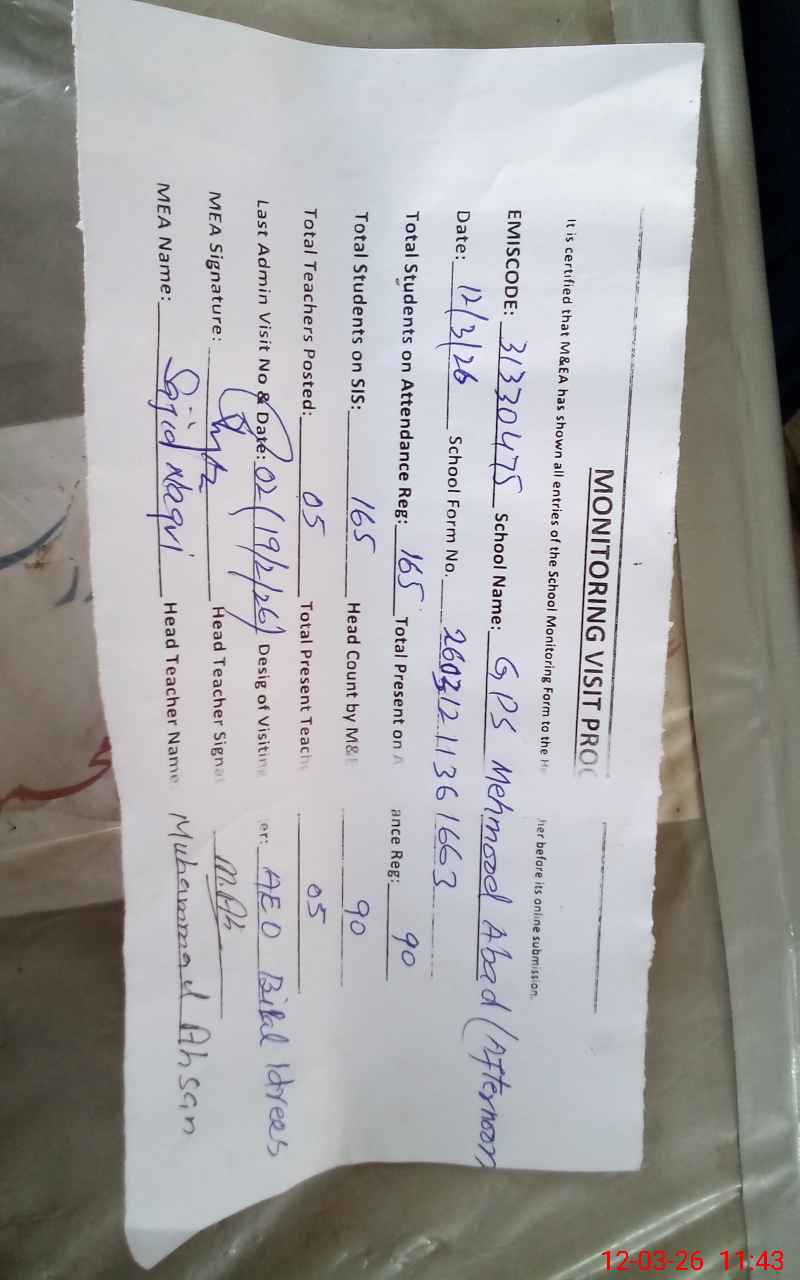 MONITORING VISIT PROO
It is certified that M&EA has shown all entries of the School Monitoring Form to the He her before its online submission.
EMISCODE: 31330475 School Name: GPS Mehmood Abad (Afternoon
Date: 12/3/26 School Form No. 26031211361663
Total Students on Attendance Reg: 165 Total Present on A ance Reg: 90
Total Students on SIS: 165 Head Count by M&E 90
Total Teachers Posted: 05 Total Present Teache 05
Last Admin Visit No & Date: 02 (19/2/26) Desig of Visiting er: AEO Bilal Idrees
MEA Signature: Head Teacher Signat
MEA Name: Sajid Naqvi Head Teacher Name Muhammad Ahsan
12-03-26 11:43